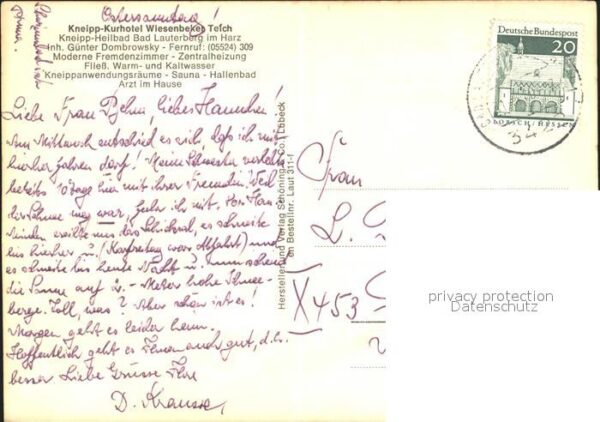 Ostersamstag!
Kneipp-Kurhotel Wiesenbeker Teich
Kneipp-Heilbad Bad Lauterberg im Harz
Inh. Günter Dombrowsky - Fernruf: (05524) 309
Moderne Fremdenzimmer - Zentralheizung
Fließ. Warm- und Kaltwasser
Kneippanwendungsräume - Sauna - Hallenbad
Arzt im Hause
Liebe Frau Böhm, liebes Hannchen!
Am Mittwoch entschied es sich, daß ich mit
hierher fahren darf! Meine Schwester verlebte
bereits 10 Tage hier mit ihrer Freundin! Weil
der Sohn weg war, fuhr ich mit. Vor Han.
Münden ereilte uns das Schicksal, es schneite
bis hierher u. (Karfreitag war Abfahrt) und
es schneite bis heute Nacht u. nun scheint
die Sonne auf d. - Meter hohe Schnee-
berge. Toll, was? Aber schön ist es!
Morgen geht es leider heim.
Hoffentlich geht es Ihnen auch gut, d.h.
besser. Liebe Grüsse Ihre
D. Krause
Hersteller und Verlag Schöning & Co., Lübeck
Bestellnr. Laut 311-1
Deutsche Bundespost
20
LORSCH/HESSEN
342
Frau
L.
X 453
privacy protection
Datenschutz